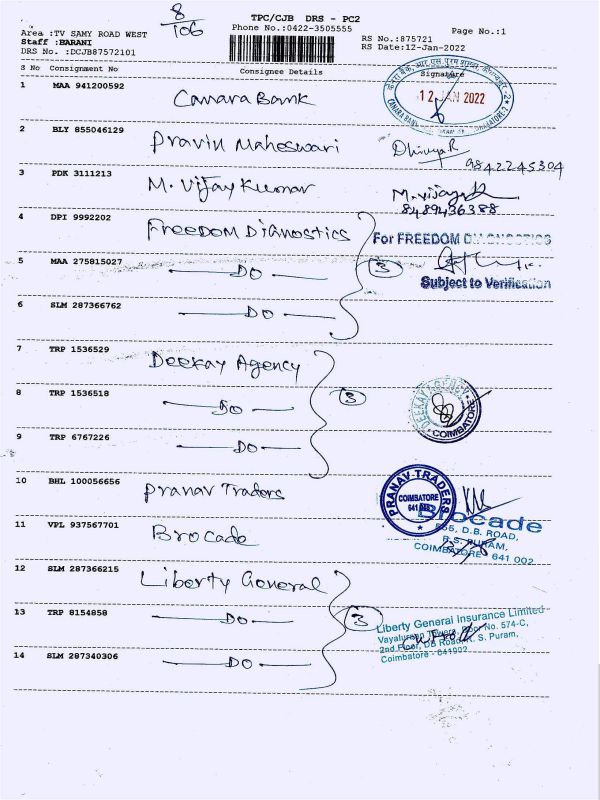 8/106
TPC/CJB DRS - PC2
Phone No.:0422-3505555
Area :TV SAMY ROAD WEST
Staff :BARANI
DRS No. :DCJB87572101
Page No.:1
RS No.:875721
RS Date:12-Jan-2022
S No Consignment No Consignee Details Signature
1 MAA 941200592 Canara Bank
12 JAN 2022
2 BLY 855046129 Pravin Maheswari Dhivya R
9842245304
3 PDK 3111213 M. Vijay Kumar M. Vijay
8489436388
4 DPI 9992202 Freedom Diagnostics
For FREEDOM DIAGNOSTICS
5 MAA 275815027 — DO — 3
Subject to Verification
6 SLM 287366762 — DO —
7 TRP 1536529 Deekay Agency
8 TRP 1536518 — DO — 3
DEEKAY AGENCY COIMBATORE
9 TRP 6767226 — DO —
10 BHL 100056656 Pranav Traders
PRANAV TRADERS
COIMBATORE
11 VPL 937567701 Brocade
Brocade
D.B. ROAD,
R.S. PURAM,
COIMBATORE - 641 002
12 SLM 287366215 Liberty General
13 TRP 8154858 — DO — 3
Liberty General Insurance Limited
Door No. 574-C,
2nd Floor, DB Road, R. S. Puram,
Coimbatore - 641002
14 SLM 287340306 — DO —